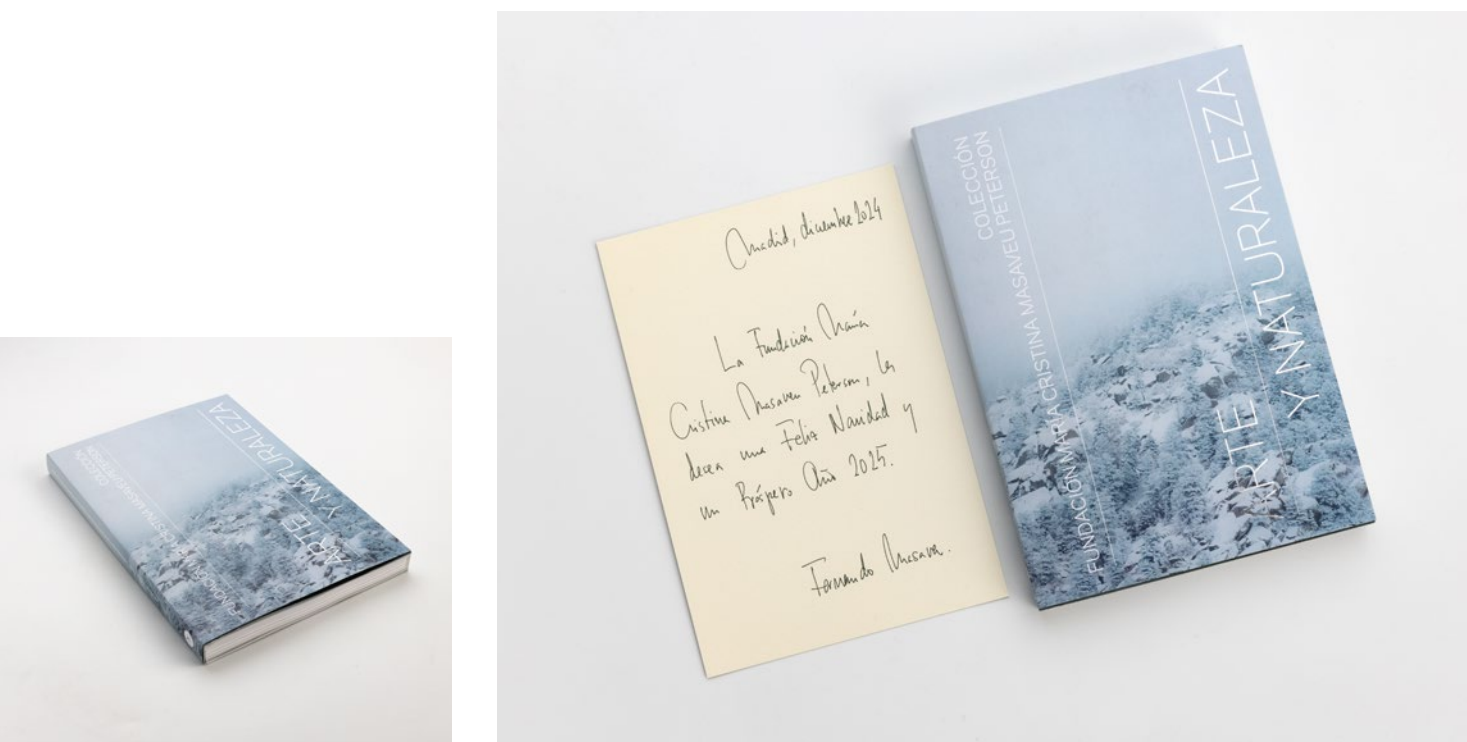 COLECCIÓN
FUNDACIÓN MARÍA CRISTINA MASAVEU PETERSON
ARTE
Y NATURALEZA
Madrid, diciembre 2024
La Fundación María
Cristina Masaveu Peterson, les
desea una Feliz Navidad y
un Próspero Año 2025.
Fernando Masaveu.
COLECCIÓN
FUNDACIÓN MARÍA CRISTINA MASAVEU PETERSON
ARTE
Y NATURALEZA